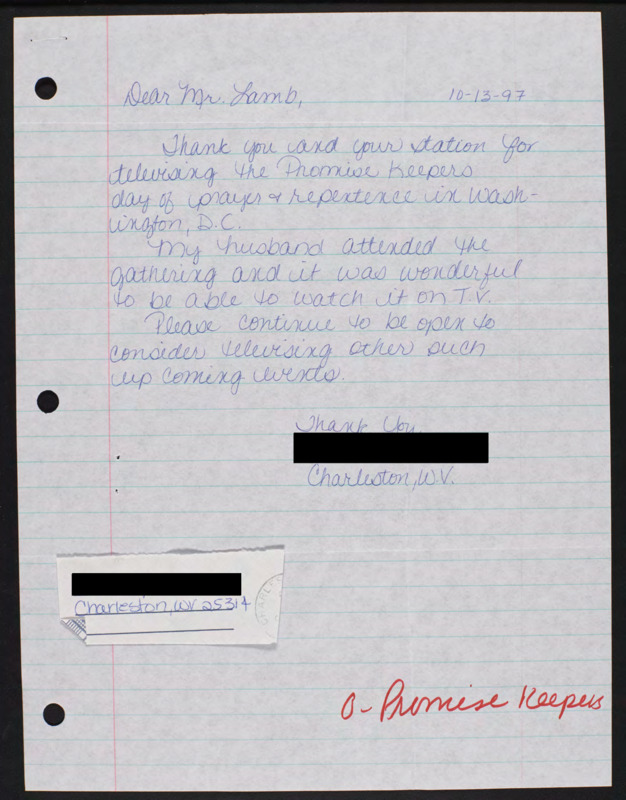 Dear Mr. Lamb,
10-13-97
Thank you and your station for
televising the Promise Keepers
day of prayer & repentence in Wash-
ington, D.C.
My husband attended the
gathering and it was wonderful
to be able to watch it on T.V.
Please continue to be open to
consider televising other such
up coming events.
Thank You,
Charleston, W.V.
Charleston, WV 25314
O- Promise Keepers